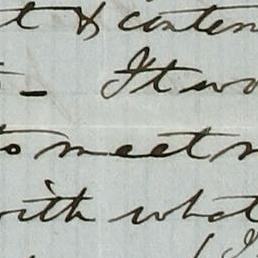 t & conten
- It wo
to meet m
with what